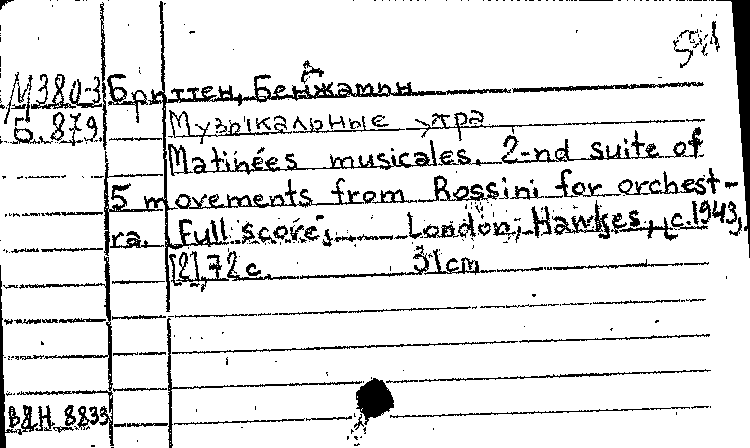 М380-3 Бриттен, Бенджамин
Б.879 Музыкальные утра
Matinées musicales. 2-nd suite of
5 movements from Rossini for orchest-
ra. [Full score]. London, Hawkes, [c.1943],
[2], 72 с. 31cm
8833